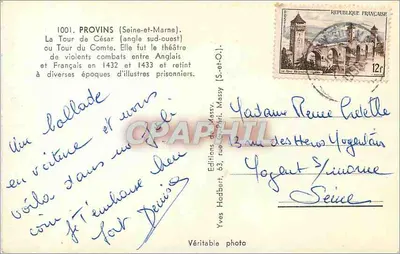 1001. PROVINS (Seine-et-Marne).
La Tour de César (angle sud-ouest)
ou Tour du Comte. Elle fut le théâtre
de violents combats entre Anglais
et Français en 1432 et 1433 et retint
à diverses époques d'illustres prisonniers.
REPUBLIQUE FRANÇAISE
12F
Une ballade
en voiture et nous
voilà dans un joli
coin je t'embrasse bien
fort Denise
Yves Hodbert, 63, rue de Paris, Massy (S.-et-O.)
Editions
Massy.
CPARHIL
Madame
3 rue des Héros Nogentais
Nogent s/marne
Seine
Véritable photo